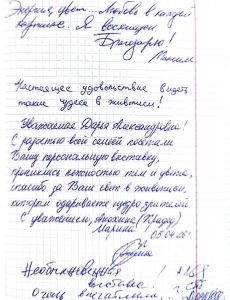 Энергия, цвет... Любовь в каждой
картине. Я восхищён!
Благодарю!
Максим
Настоящее удовольствие видеть
такие чудеса в живописи!
Уважаемая Дарья Александровна!
С радостью всей семьёй посетили
Вашу персональную выставку,
прониклись нежностью тем и цветов,
спасибо за Ваш свет в живописи,
которым одариваете щедро зрителей
С уважением, Анохина
Марина 05.04.26г.
Необыкновенная
выставка
очень впечатлил...